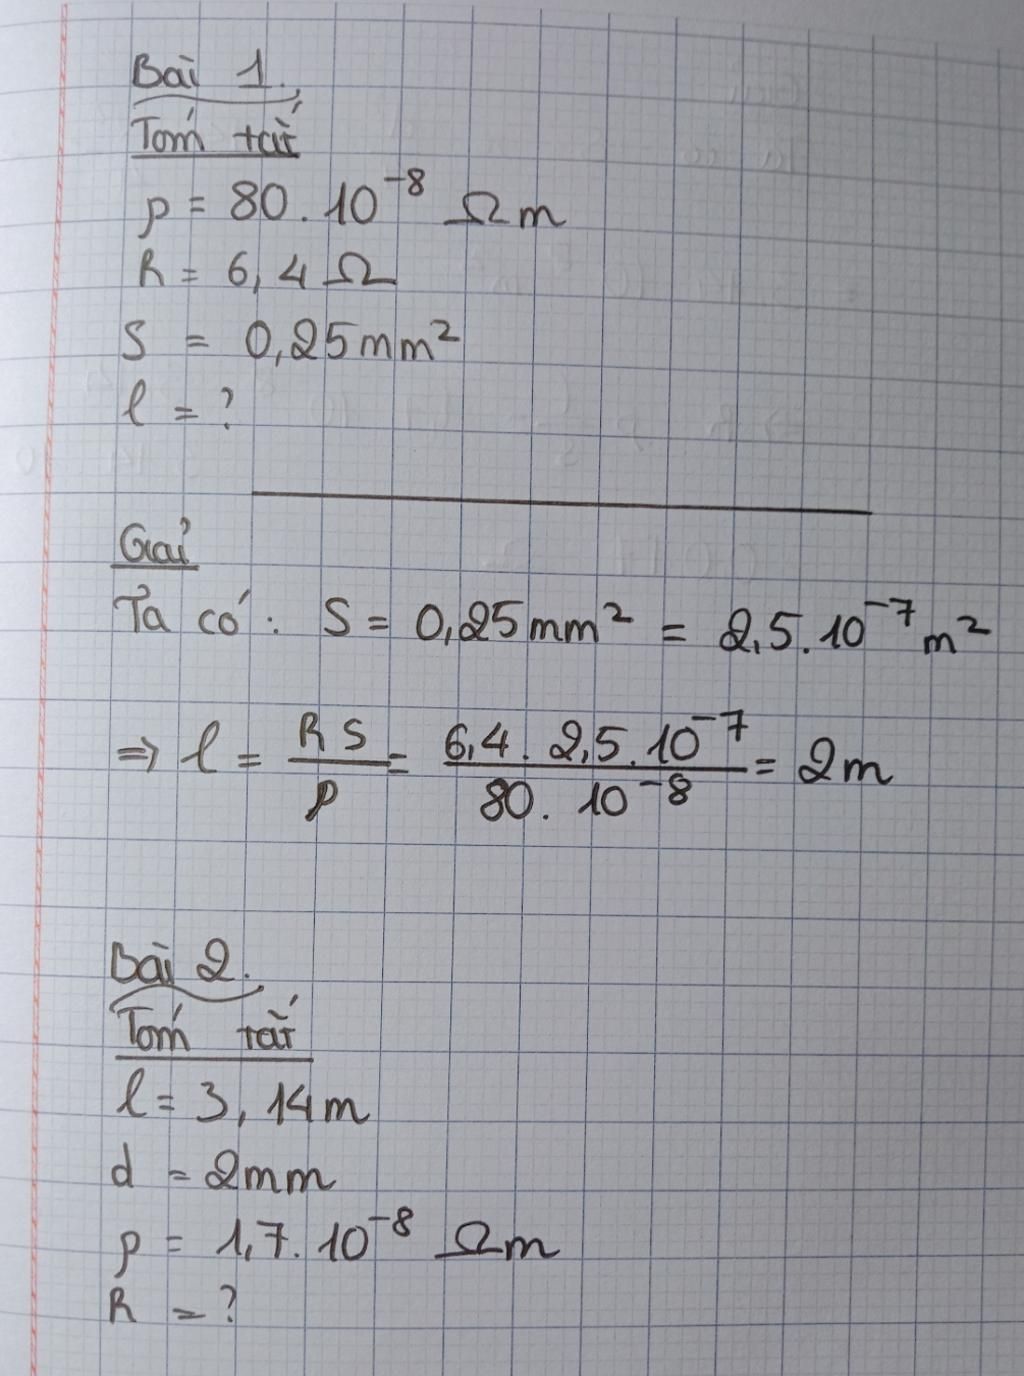 Bài 1.
Tóm tắt
ρ = 80.10⁻⁸ Ωm
R = 6,4 Ω
S = 0,25mm²
l = ?
Giải
Ta có: S = 0,25mm² = 2,5.10⁻⁷ m²
=> l = RS/ρ = 6,4. 2,5.10⁻⁷/80. 10⁻⁸ = 2m
Bài 2.
Tóm tắt
l = 3,14m
d = 2mm
ρ = 1,7.10⁻⁸ Ωm
R = ?